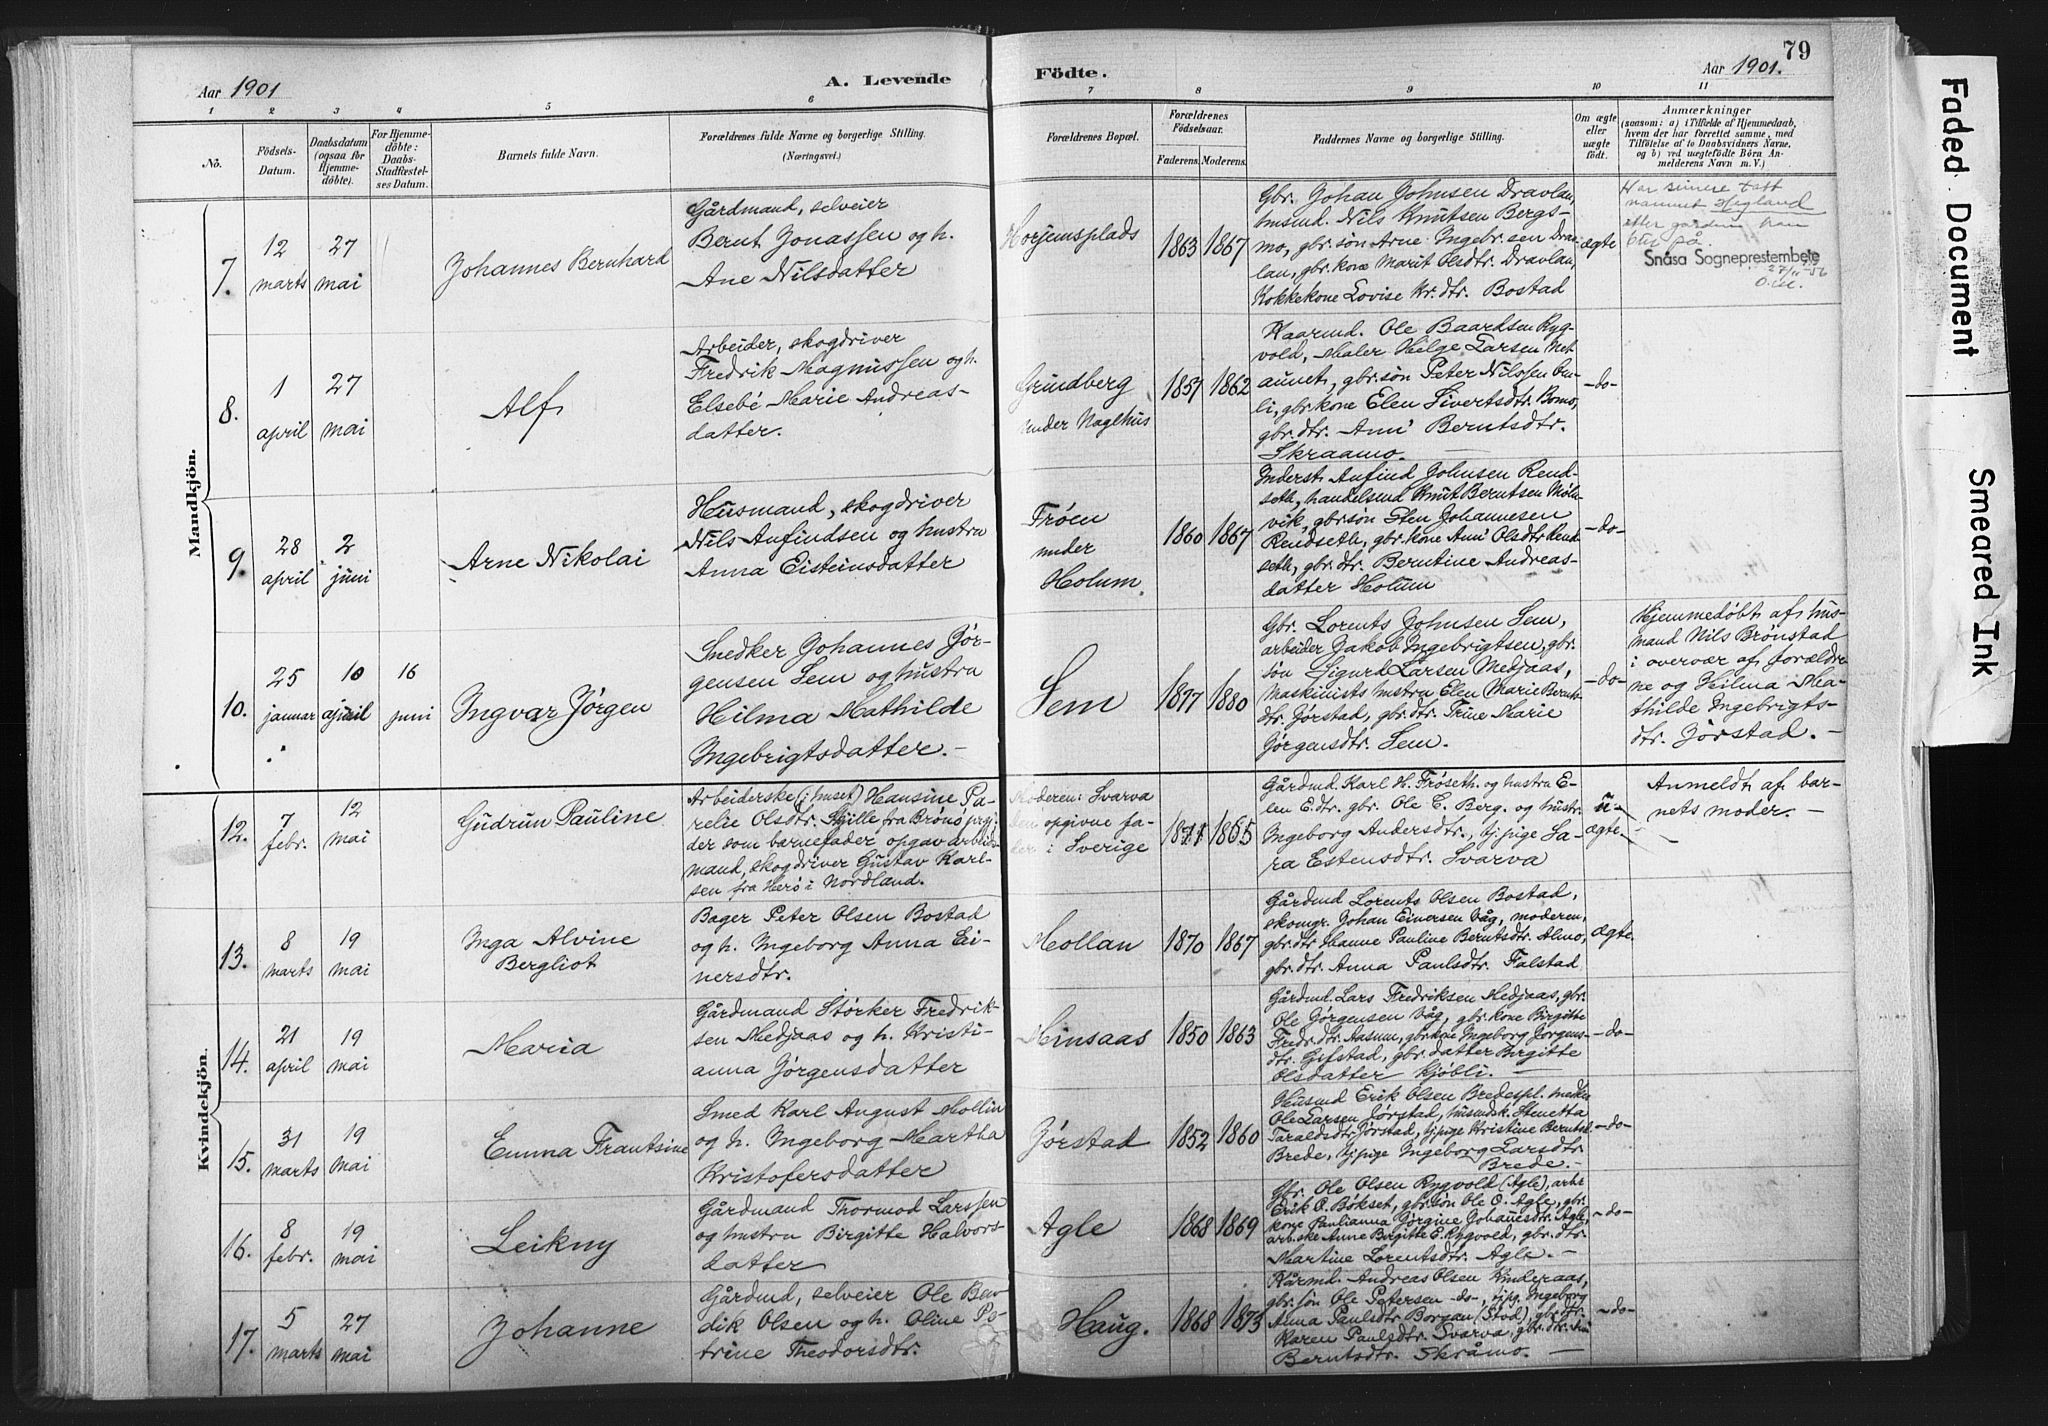 Aar 1901
A. Levende
Födte.
Aar 1901.
79
1 2 3 4 5 6 7 8 9 10 11
No.
Födsels-
Datum.
Daabsdatum
(ogsaa for
Hjemme-
döbte).
For Hjemme-
döbte:
Daabs-
Stadfæstel-
ses Datum.
Barnets fulde Navn.
Forældrenes fulde Navne og borgerlige Stilling.
(Næringsvei.)
Forældrenes Bopæl.
Forældrenes
Födselsaar.
Faderens. Moderens.
Faddernes Navne og borgerlige Stilling.
Om ægte
eller
uægte
födt.
Anmærkninger
(saasom: a) i Tilfælde af Hjemmedaab,
hvem der har forrettet samme, med
Tilföielse af to Daabsvidners Navne,
og b) ved uægtefödte Börn An-
melderens Navn m. V.)
Mandkjön.
7.
12
marts
27
mai
Johannes Bernhard
Gårdmand, selveier
Bernt Jonassen og h.
Ane Nilsdatter
Horjemsplads
1863 1867
Gbr. Johan Johnsen Dravlan,
husmd. Nils Knutsen Bergs-
mo, gbr. søn Arne Ingebr. sen Drav-
lan, gbr. kone Marit Olsdtr. Dravlan,
Kokkekone Lovise Kr. dtr. Bostad
ægte
Har senere tatt
navnet Hegland
etter gården han
Snåsa Sogneprestembete
8.
1
april
27
mai
Alf
Arbeider, skogdriver
Fredrik Magnussen og h.
Elsebé Marie Andreas-
datter.
Grindberg
under Naglhus
1857 1862
Kaarmd. Ole Baardsen Ryg-
vold, Maler Helge Larsen Met-
aunet, gbr. søn Peter Nilssen Om-
li, gbr. kone Elen Sivertsdtr. Bomo,
gbr. dtr. Anni Berntsdtr.
Skraamo.
-do-
9.
28
april
2
juni
Arne Nikolai
Husmand, skogdriver
Nils Anfindsen og hustru
Anna Eisteinsdatter
Frøen
under
Holum.
1860 1867
Inderst Anfind Johnsen Rend-
seth, handelsmd Knut Berntsen Møln-
vik, gbr. søn Sten Johannesen
Rendseth, gbr. kone Anni Olsdtr Rend-
seth, gbr. dtr. Berntine Andreas-
datter Holum
-do-
10.
25
januar
10
april
16
juni
Ingvar Jørgen
Snedker Johannes Jør-
gensen Sem og hustru
Hilma Mathilde
Ingebrigtsdatter.-
Sem
1877 1880
Gbr. Lorents Johnsen Sem,
arbeider Jakob Ingebrigtsen, gbr.
søn Sigurd Larsen Medjaas,
Maskinists hustru Elen Marie Bernts-
dtr. Jørstad, gbr. dtr. Trine Marie
Jørgensdtr. Sem.
-do-
Hjemmedøbt af hus-
mand Nils Brønstad
i overvær af forældre-
ne og Hilma Ma-
thilde Ingebrigts-
dtr. Jørstad.-
Kvindekjön.
12.
7
febr.
12
mai
Gudrun Pauline
Arbeiderske (i huset) Hansine Pa-
relie Olsdtr. Skille fra Brønø prgj.
der som barnefader opgav arbeids-
mand, skogdriver Gustav Karl-
sen fra Herö i Nordland.
Moderen: Svarva
den opgivne fa-
der: i Sverige
1871 1865
Gårdmd. Karl H. Frøseth. og hustru E-
len E. dtr. gbr. Ole E. Berg. og hustr.
Ingeborg Andersdtr., tj. pige Sa-
ra Estensdtr. Svarva
u-
ægte.
Anmeldt af bar-
nets moder.-
13.
8
marts
19
mai
Inga Alvine
Bergliot
Bager Peter Olsen Bostad
og h. Ingeborg Anna Ei-
nersdtr.
Mollan
1870 1867
Gårdmd Lorents Olsen Bostad,
skomgr. Johan Einersen Våg, moderen,
gbr. dtr Hanne Pauline Berntsdtr. Almo,
gbr. dtr. Anna Paulsdtr. Falstad
ægte.
14.
21
april
19
mai
Maria
Gårdmand Størker Fredrik-
sen Medjaas og h. Kristi-
anna Jørgensdatter
Minsaas
1850 1863
Gårdmd. Lars Fredriksen Medjaas, gbr.
Ole Jørgensen Våg, gbr. kone Birgitte
Fredr. dtr. Aasum, gbr. kone Ingeborg Jørgens-
dtr. Gifstad, gbr. datter Birgitte
Olsdatter Kjøbli.-
-do-
15.
31
marts
19
mai
Emma Frantsine
Smed Karl August Mollin
og h. Ingeborg Martha
Kristofersdatter
Jørstad
1852 1860
Husmd Erik Olsen Bredespl.
Ole Larsen Jørstad, husmdsk. Stenetta
Taraldsdtr Jørstad, tj. pige Kristine Berntsd.
Brede, tj. pige Ingeborg Larsdtr
Brede.-
-do-
16.
8
febr.
19
mai
Leikny
Gårdmand Thormod Larssen
og hustru Birgitte Halvors-
datter
Agle
1868 1869
Gbr. Ole Olsen Rygvold (Agle), arb.
Erik P. Bökset, gbr. søn Ole O. Agle, gbr.
kone Paulianna Jørgine Johannesdtr. Agle,
arb. ske Anne Birgitte E. Rygvold, gbr. dtr.
Martine Lorentsdtr. Agle.-
-do-
17.
5
marts
27
mai
Johanne
Gårdmd, selveier Ole Ben-
dik Olsen og h. Oline Pe-
trine Theodorsdtr.
Haug.
1868 1873
Kårmd. Andreas Olsen Kinderaas,
gbr. søn Ole Petersen -do-, tj.pg. Ingeborg
Anna Paulsdtr Borgan (Stod), gbr. dtr.
Karen Paulsdtr. Svarva, gbr. dtr.
Berntsdtr. Skråmo.-
-do-
Faded Document
Smeared Ink